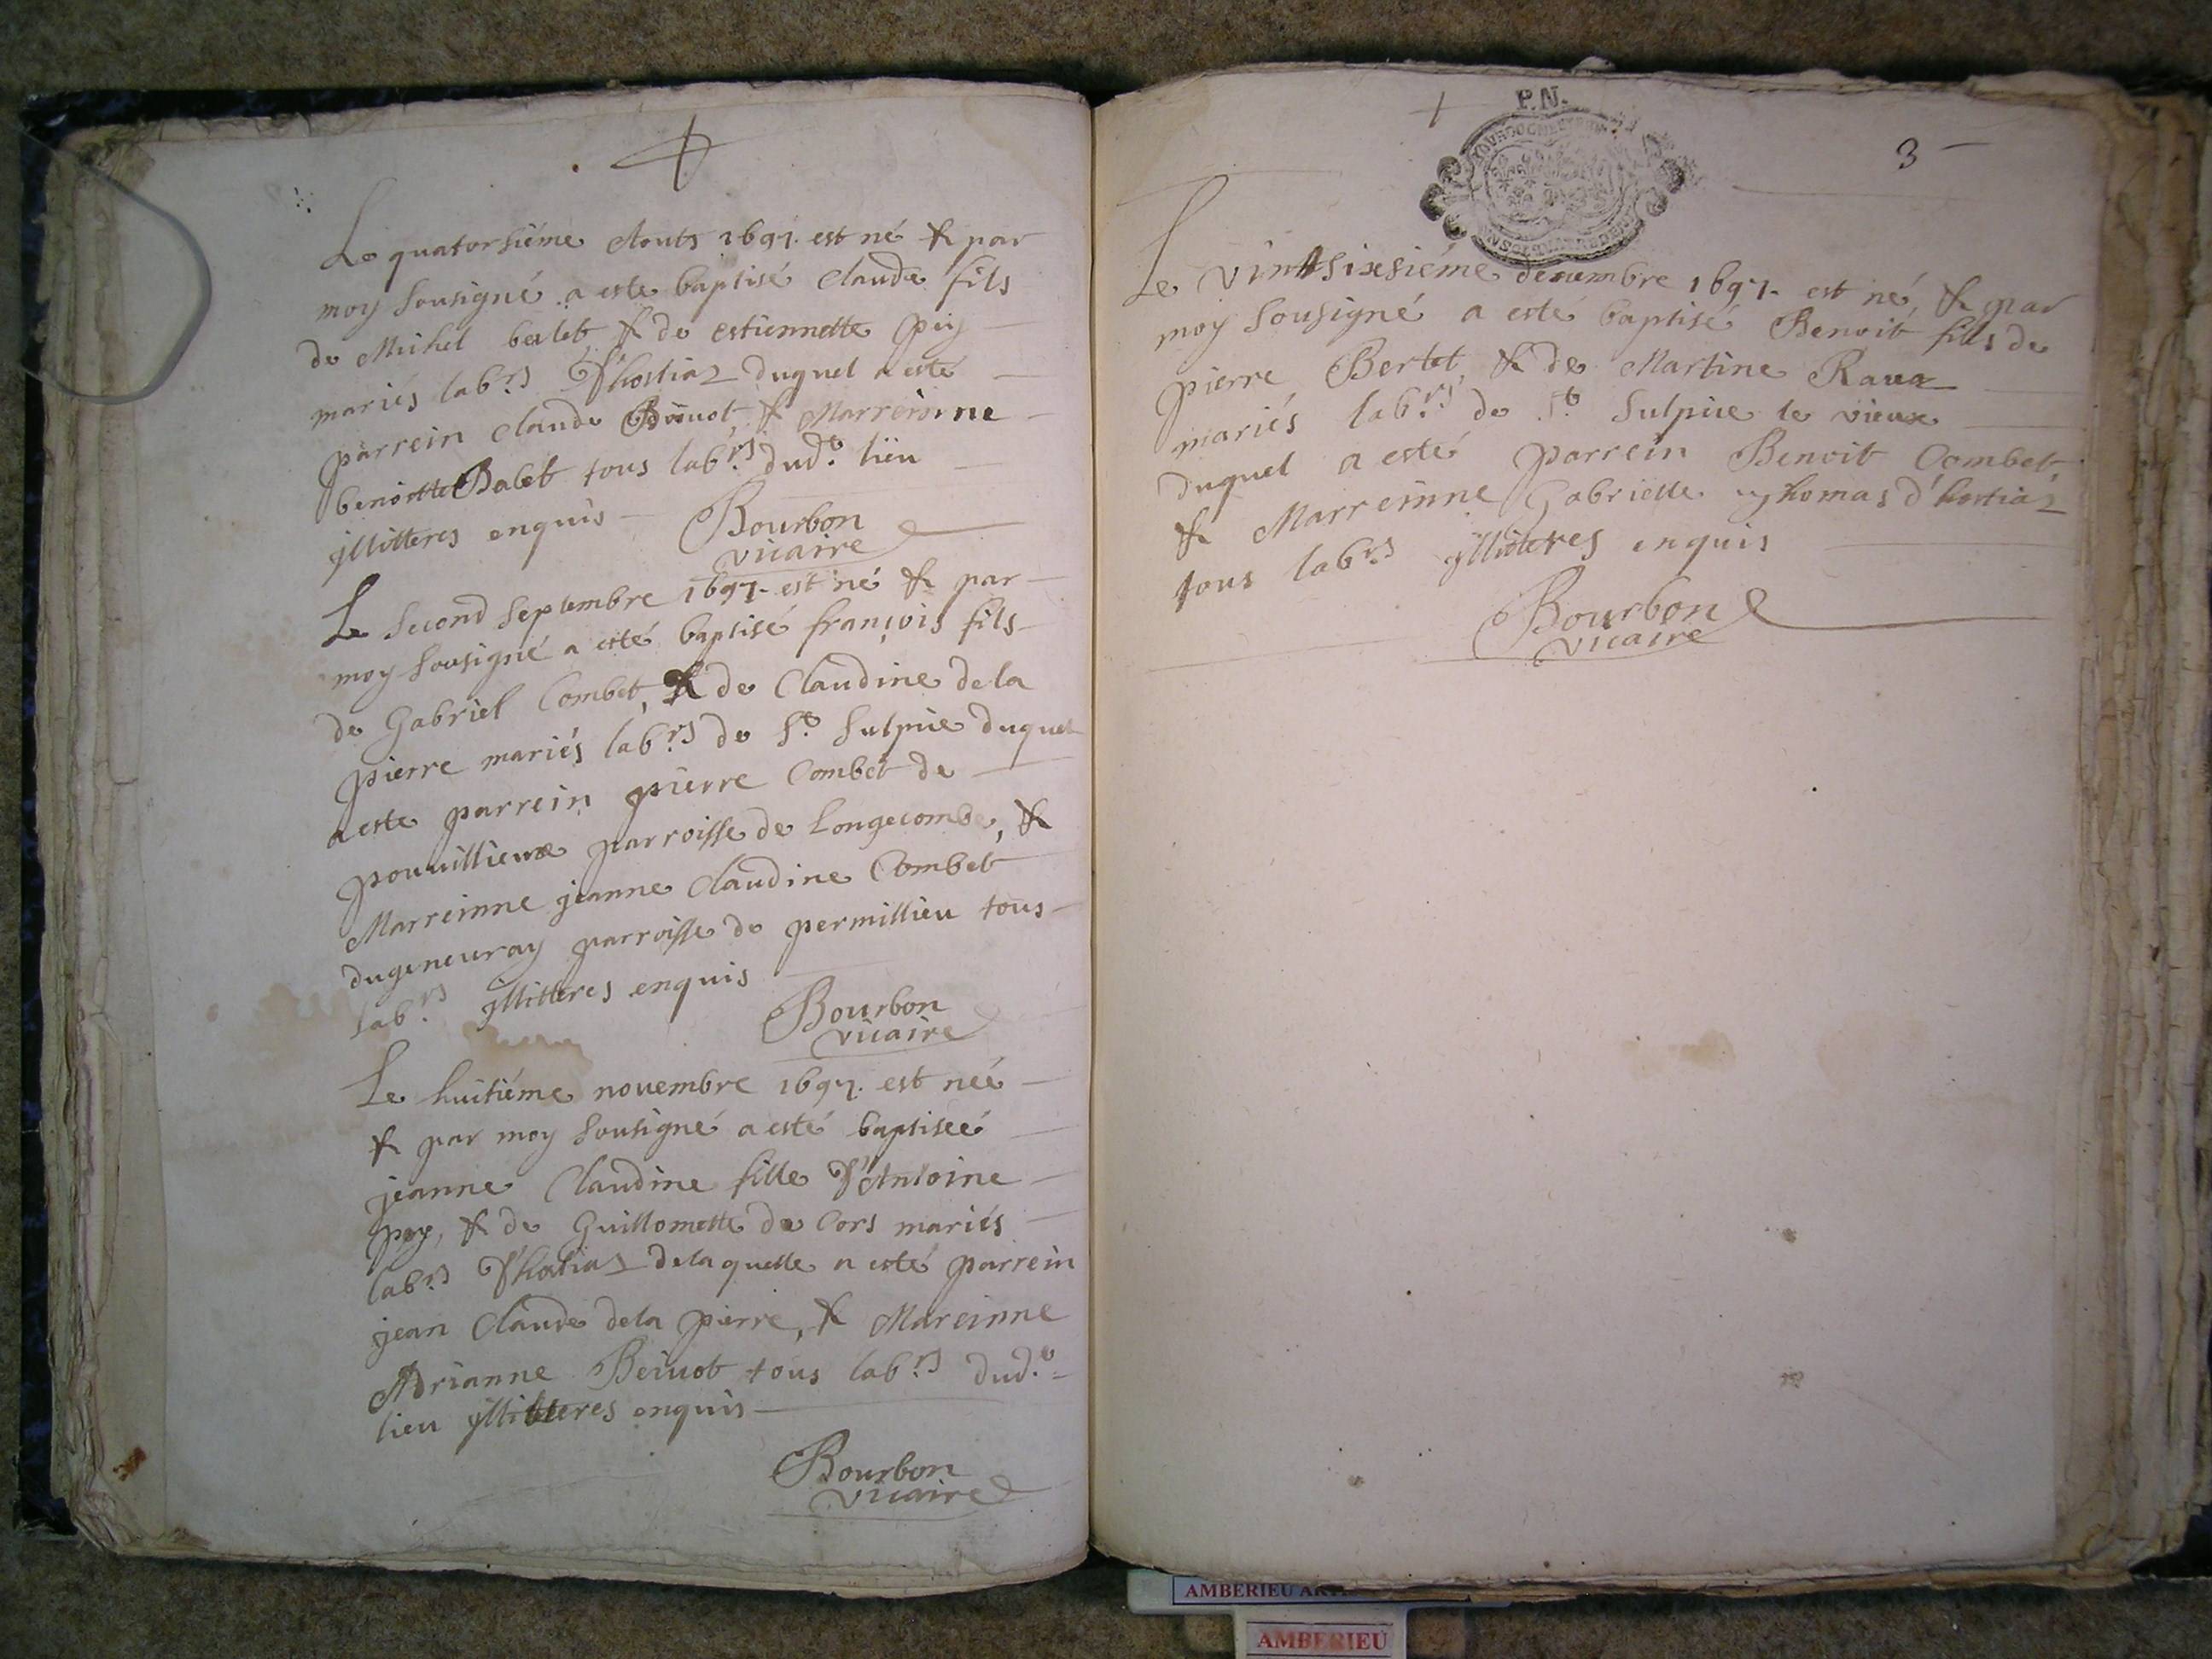 Le quatorsiéme Aouts 1697. est né & par
moy sousigné a este baptisé claude fils
de Michel balet & de estiennette puy
mariés lab.rs d'hostiaz duquel a esté
parrein claude & Marreinne
benoitte Balet tous lab.rs dud.t lieu
illitteres enquis
Bourbon
vicaire
Le second septembre 1697. est né & par
moy sousigné a esté baptisé françois fils
de Gabriel Combet, & de Claudine de la
pierre mariés lab.rs de S.t Sulpice duquel
a este parrein pierre Combet de
pouuillieux parroisse de Longecombe, &
Marreinne jeanne Claudine Combet
dugeneuray parroisse de permillieu tous
lab.rs illitteres enquis
Bourbon
vicaire
Le huitiéme novembre 1697. est née
& par moy sousigné a esté baptiseé
jeanne Claudine fille d'Antoine
puy, & de Guillomette de Cors mariés
lab.rs d'hostiaz dela quelle a esté parrein
jean Claude dela pierre, & Mareinne
Adrianne Beivot tous lab.rs dud.t
lieu illitteres enquis
Bourbon
vicaire
P.N.
3
Le vintsixsiéme decembre 1697. est né, & par
moy sousigné a esté baptisé Benoit fils de
pierre Bertet, & de Martine Ravaz
mariés lab.rs de S.t Sulpice le vieux
duquel a esté parrein Benoit Combet
& Marreinne Gabrielle thomas d'hostiaz
tous lab.rs illitteres enquis
Bourbon
vicaire
AMBERIEU
AMBERIEU